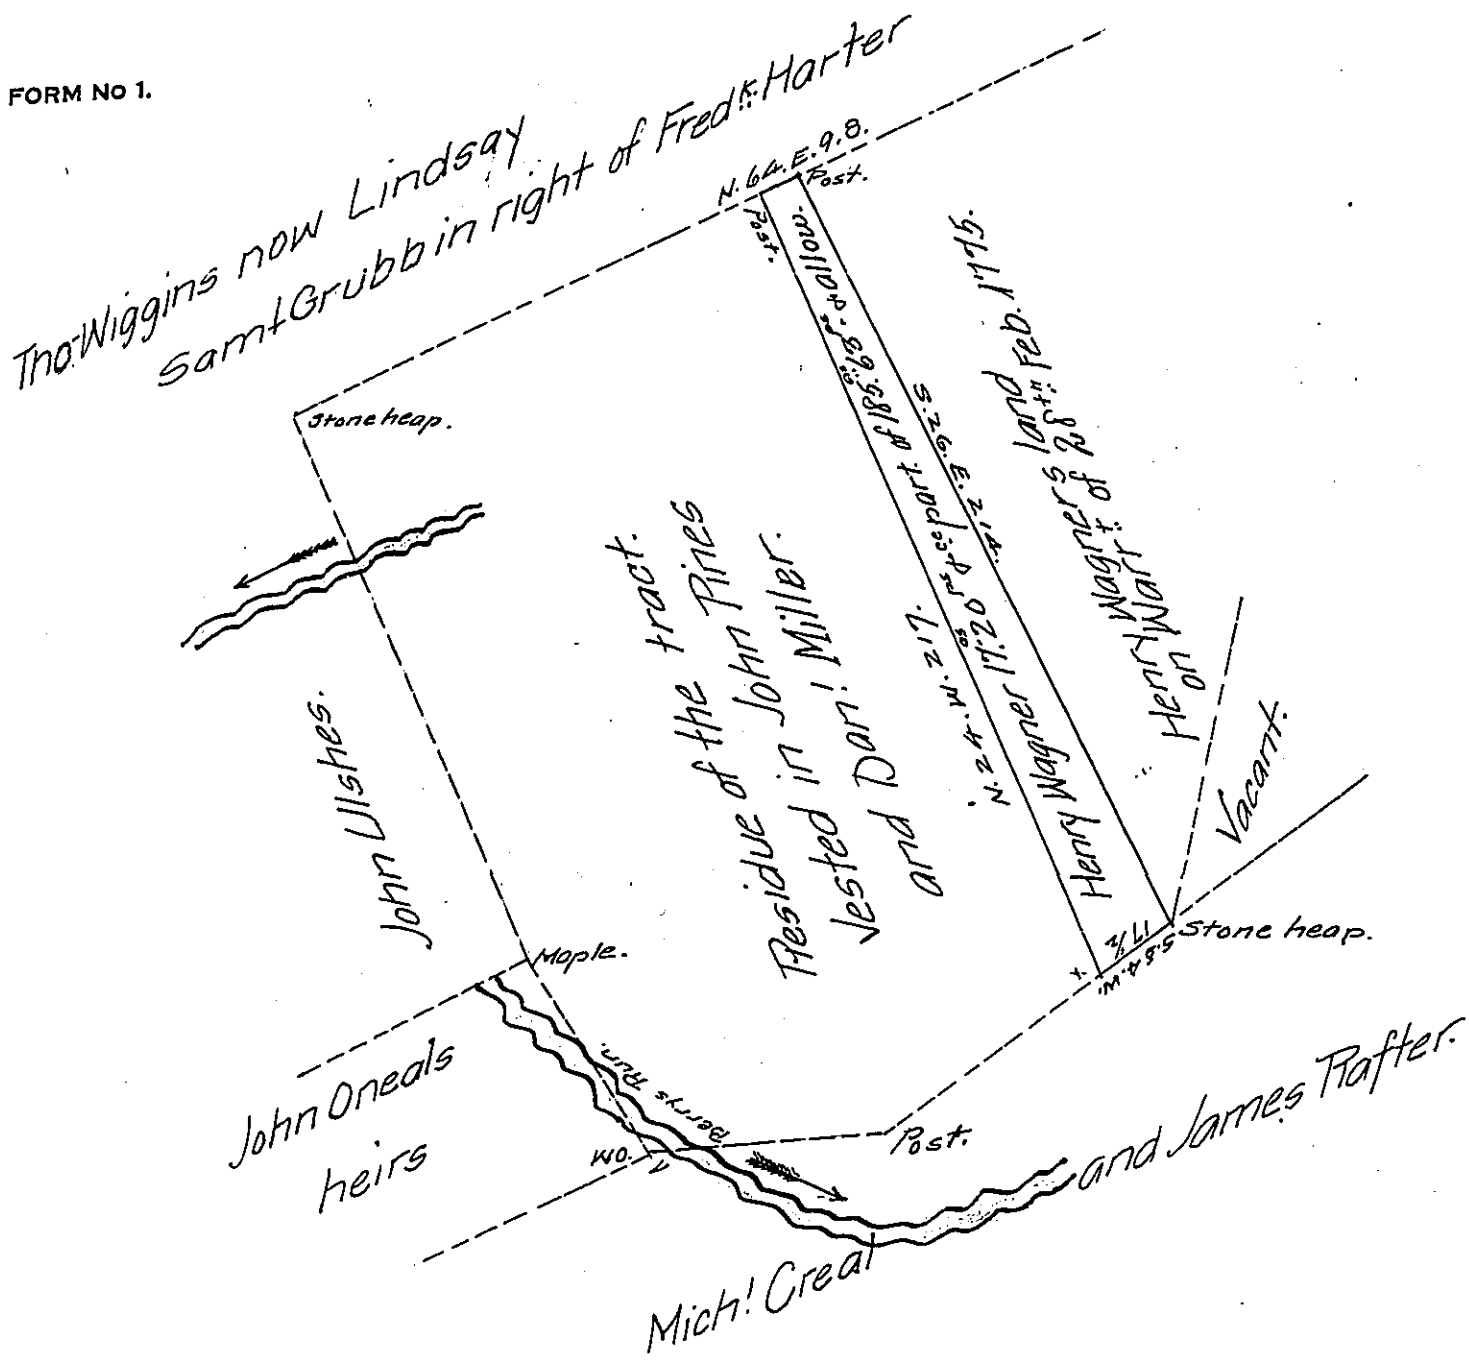 FORM No 1.
Tho: Wiggins now Lindsay
Saml Grubb in right of Fredk. Harter
N. 64. E. 9.8.
Post.
Post.
Stone heap.
John Ulshes.
Residue of the tract.
Resided in John Pines
Vested Danl. Miller.
and
N. 24. W. 217.
Henry Wagner 17.20 ps &ce part of 185.63 ps. & allow.
S. 26. E. 214.
Henry Wagner's land
on Warrt. of 28th Feb. 1775.
Vacant.
17 1/2
S. 54. W.
Stone heap.
Maple.
John Oneals
heirs
Perrys Run.
WO.
Post.
Michl. Creal
and James Rafter.